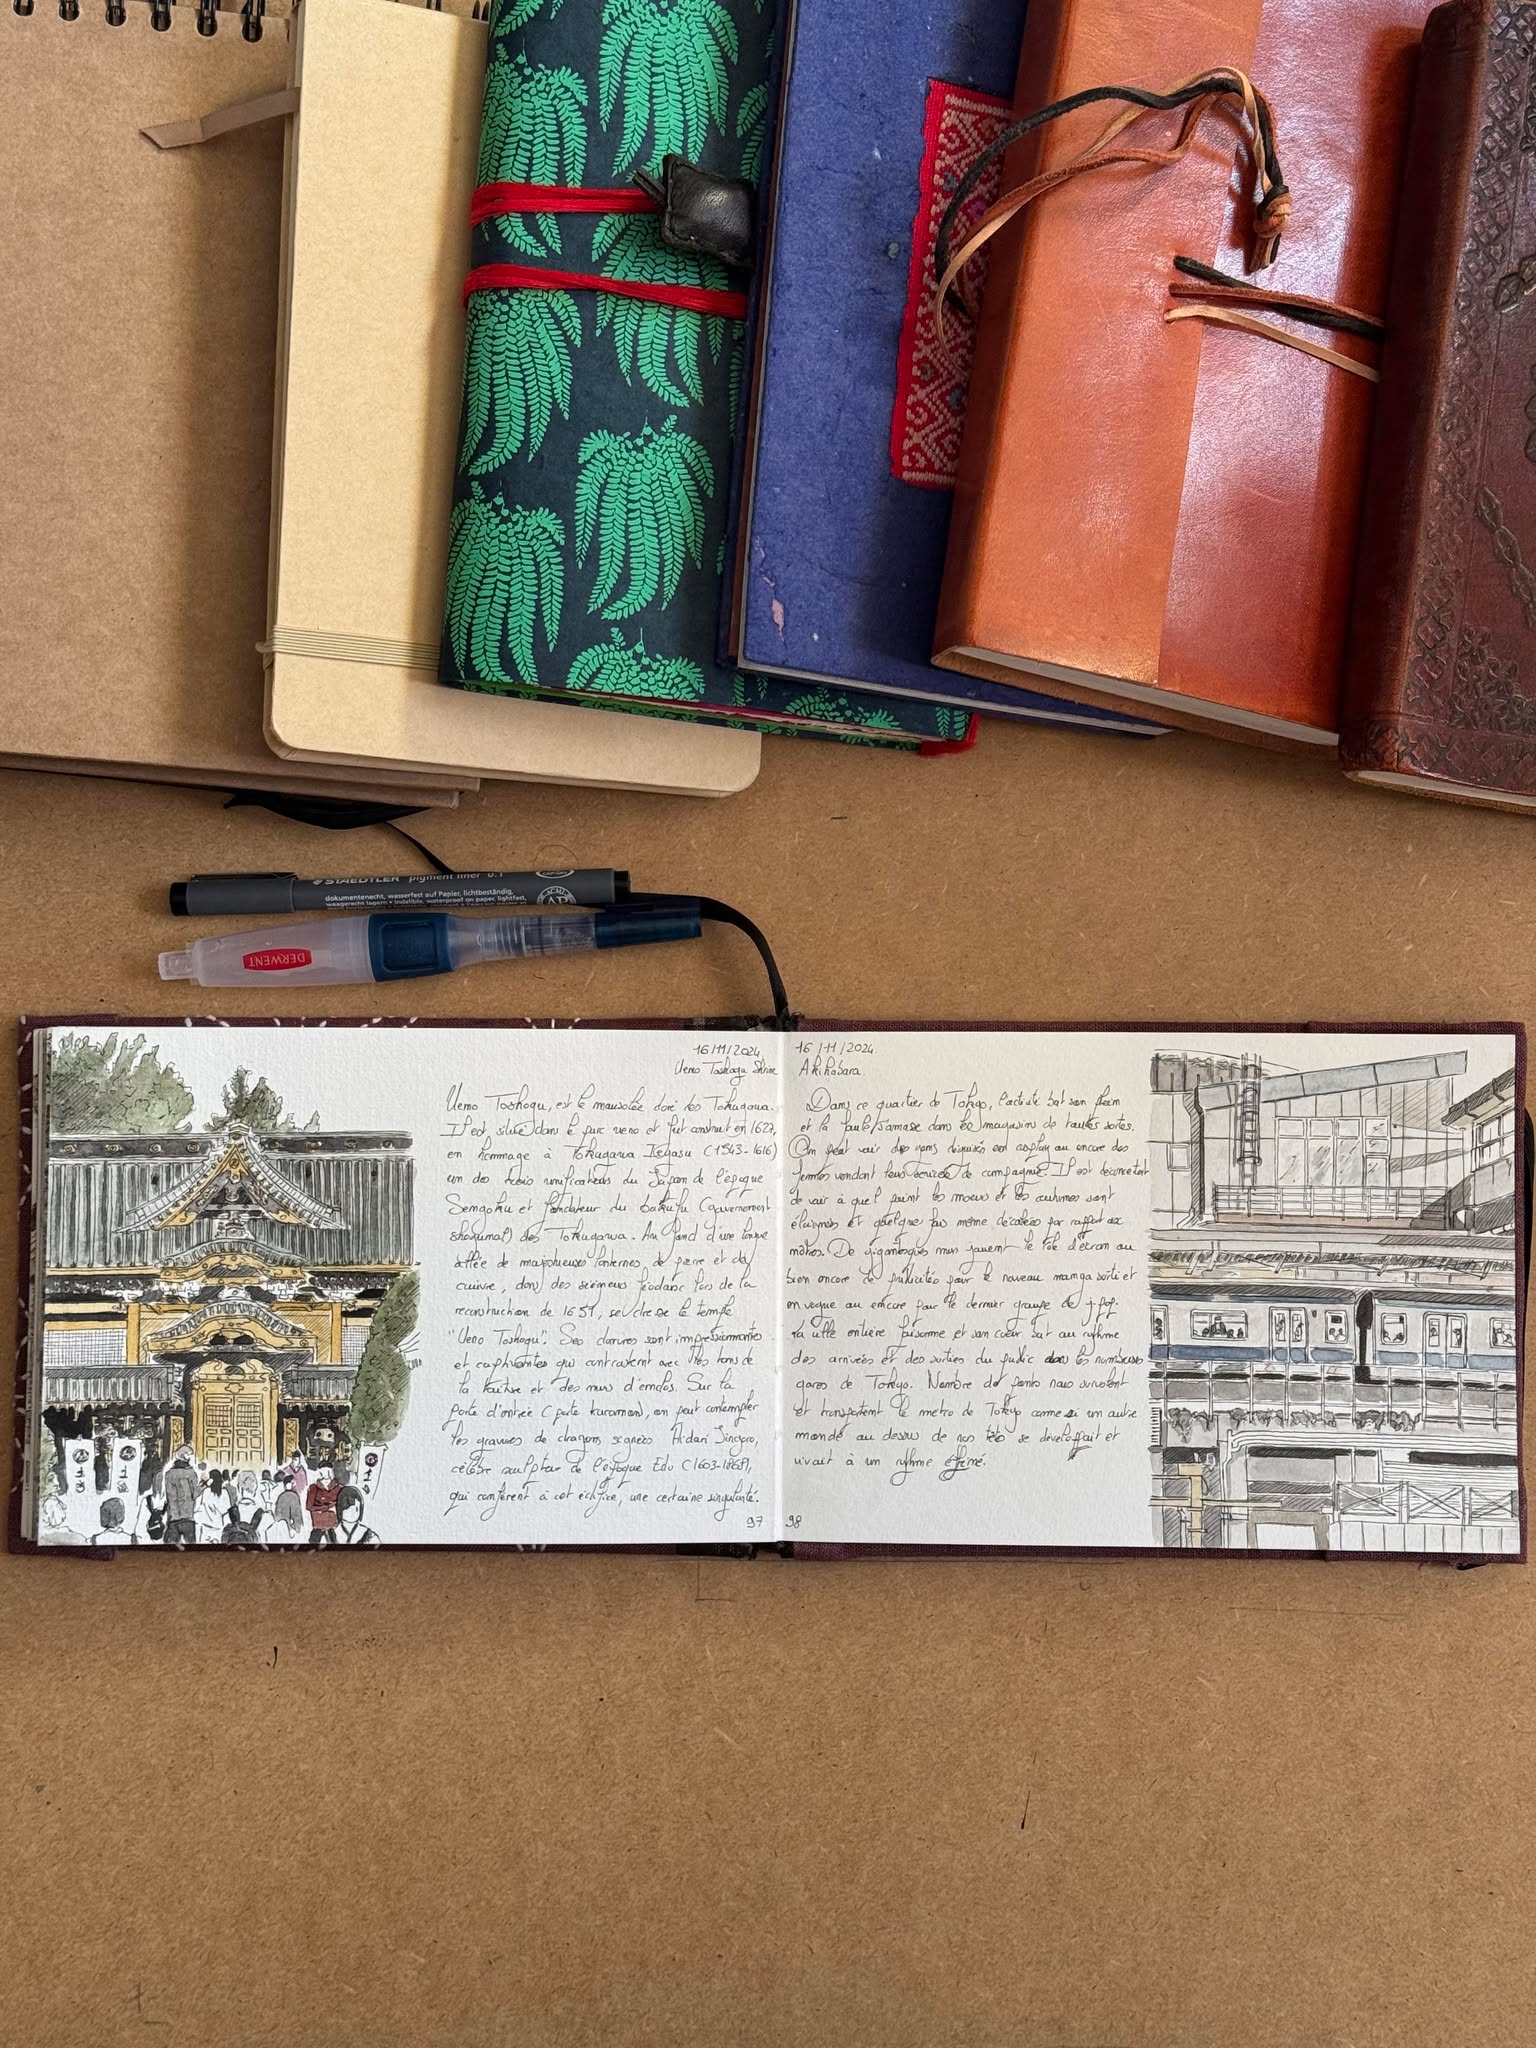 STAEDTLER pigment liner 0.1
dokumentenecht, wasserfest auf Papier, lichtbeständig,
waagerecht lagern • indelible, waterproof on paper, lightfast,
AP
DERWENT
16/11/2024
Ueno Toshogu Shrine
Ueno Toshogu, est le mausolée doré des Tokugawa.
Il est situé dans le parc Ueno et fut construit en 1627,
en hommage à Tokugawa Ieyasu (1543-1616)
un des trois unificateurs du Japon de l'époque
Sengoku et fondateur du bakufu (gouvernement
shogunal) des Tokugawa. Au fond d'une longue
allée de majestueuses lanternes, de pierre et de
cuivre, dons des seigneurs féodaux lors de la
reconstruction de 1651, se dresse le temple
"Ueno Toshogu". Ses dorures sont impressionnantes
et captivantes qui contrastent avec les tons de
la toiture et des murs d'enclos. Sur la
porte d'entrée (porte Karamon), on peut contempler
les gravures de dragons signées Hidari Jingoro,
célèbre sculpteur de l'époque Edo (1603-1868),
qui confèrent à cet édifice, une certaine singularité.
97
16/11/2024.
Akihabara.
Dans ce quartier de Tokyo, l'activité bat son plein
et la foule s'amasse dans les magasins de toutes sortes.
On peut voir des gens déguisés en cosplay ou encore des
femmes vendant leurs services de compagnie. Il est déconcertant
de voir à quel point les moeurs et les coutumes sont
éloignées et quelque fois même décalées par rapport aux
nôtres. De gigantesques murs jouent le rôle d'écran ou
bien encore de publicités pour le nouveau manga sorti et
en vogue ou encore pour le dernier groupe de j-pop.
La ville entière foisonne et son coeur bat au rythme
des arrivées et des sorties du public dans les nombreuses
gares de Tokyo. Nombre de ponts nous survolent
et transportent le métro de Tokyo comme si un autre
monde au dessus de nos têtes se développait et
vivait à un rythme effréné.
98